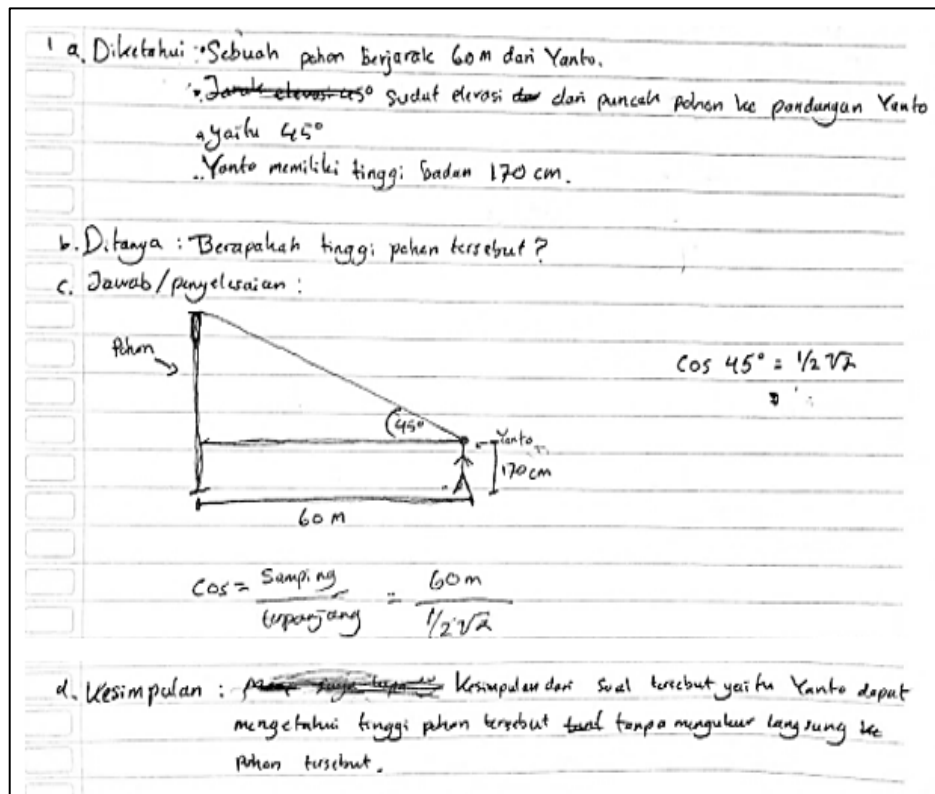 1 a. Diketahui : • Sebuah pohon berjarak 60 m dari Yanto.
• Jarak elevasi 45° sudut elevasi dari puncak pohon ke pandangan Yanto
• yaitu 45°
• Yanto memiliki tinggi badan 170 cm.
b. Ditanya : Berapakah tinggi pohon tersebut?
c. Jawab/penyelesaian :
Pohon
cos 45° = 1/2 √2
45°
Yanto
170 cm
60 m
Cos = Samping / terpanjang = 60 m / 1/2 √2
d. Kesimpulan : Kesimpulan dari soal tersebut yaitu Yanto dapat
mengetahui tinggi pohon tersebut tanpa mengukur langsung ke
pohon tersebut.